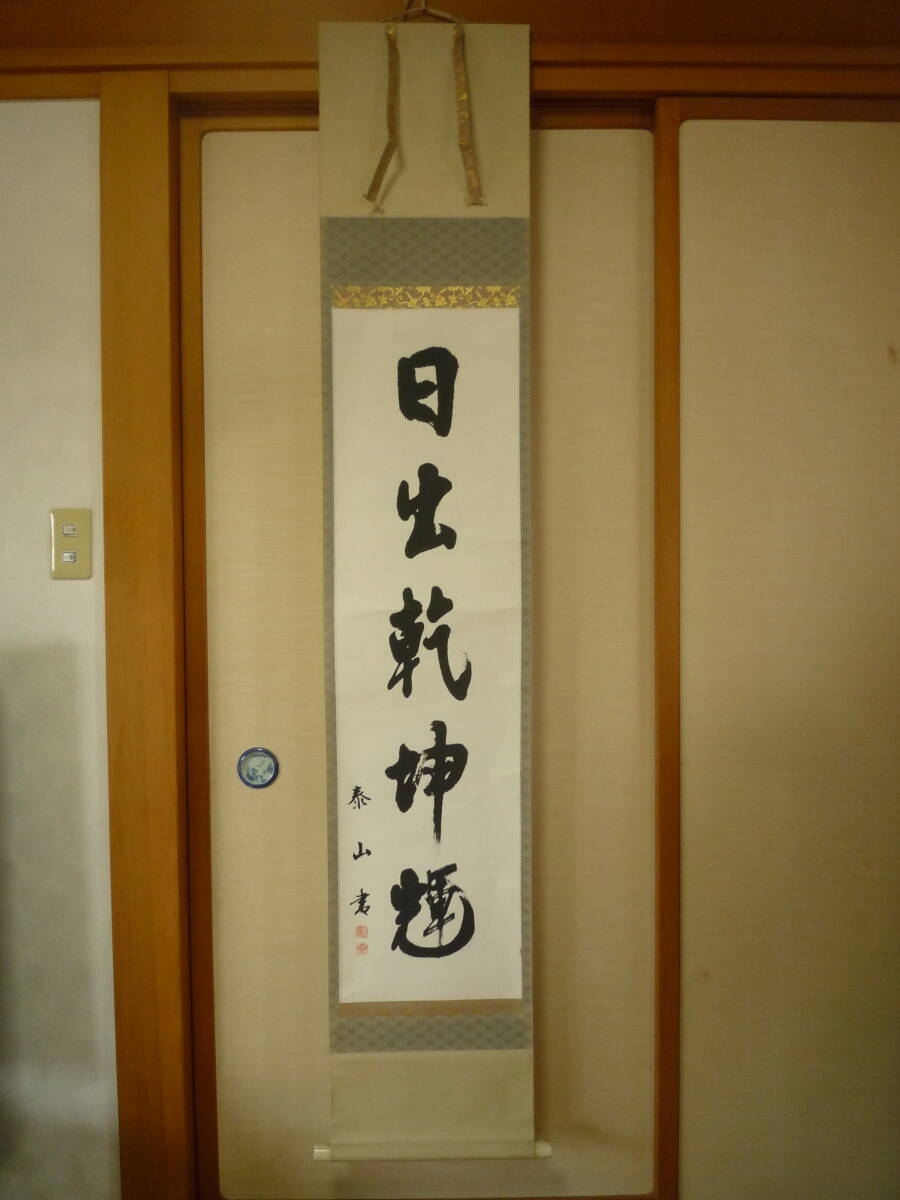 日出乾坤輝
泰山書